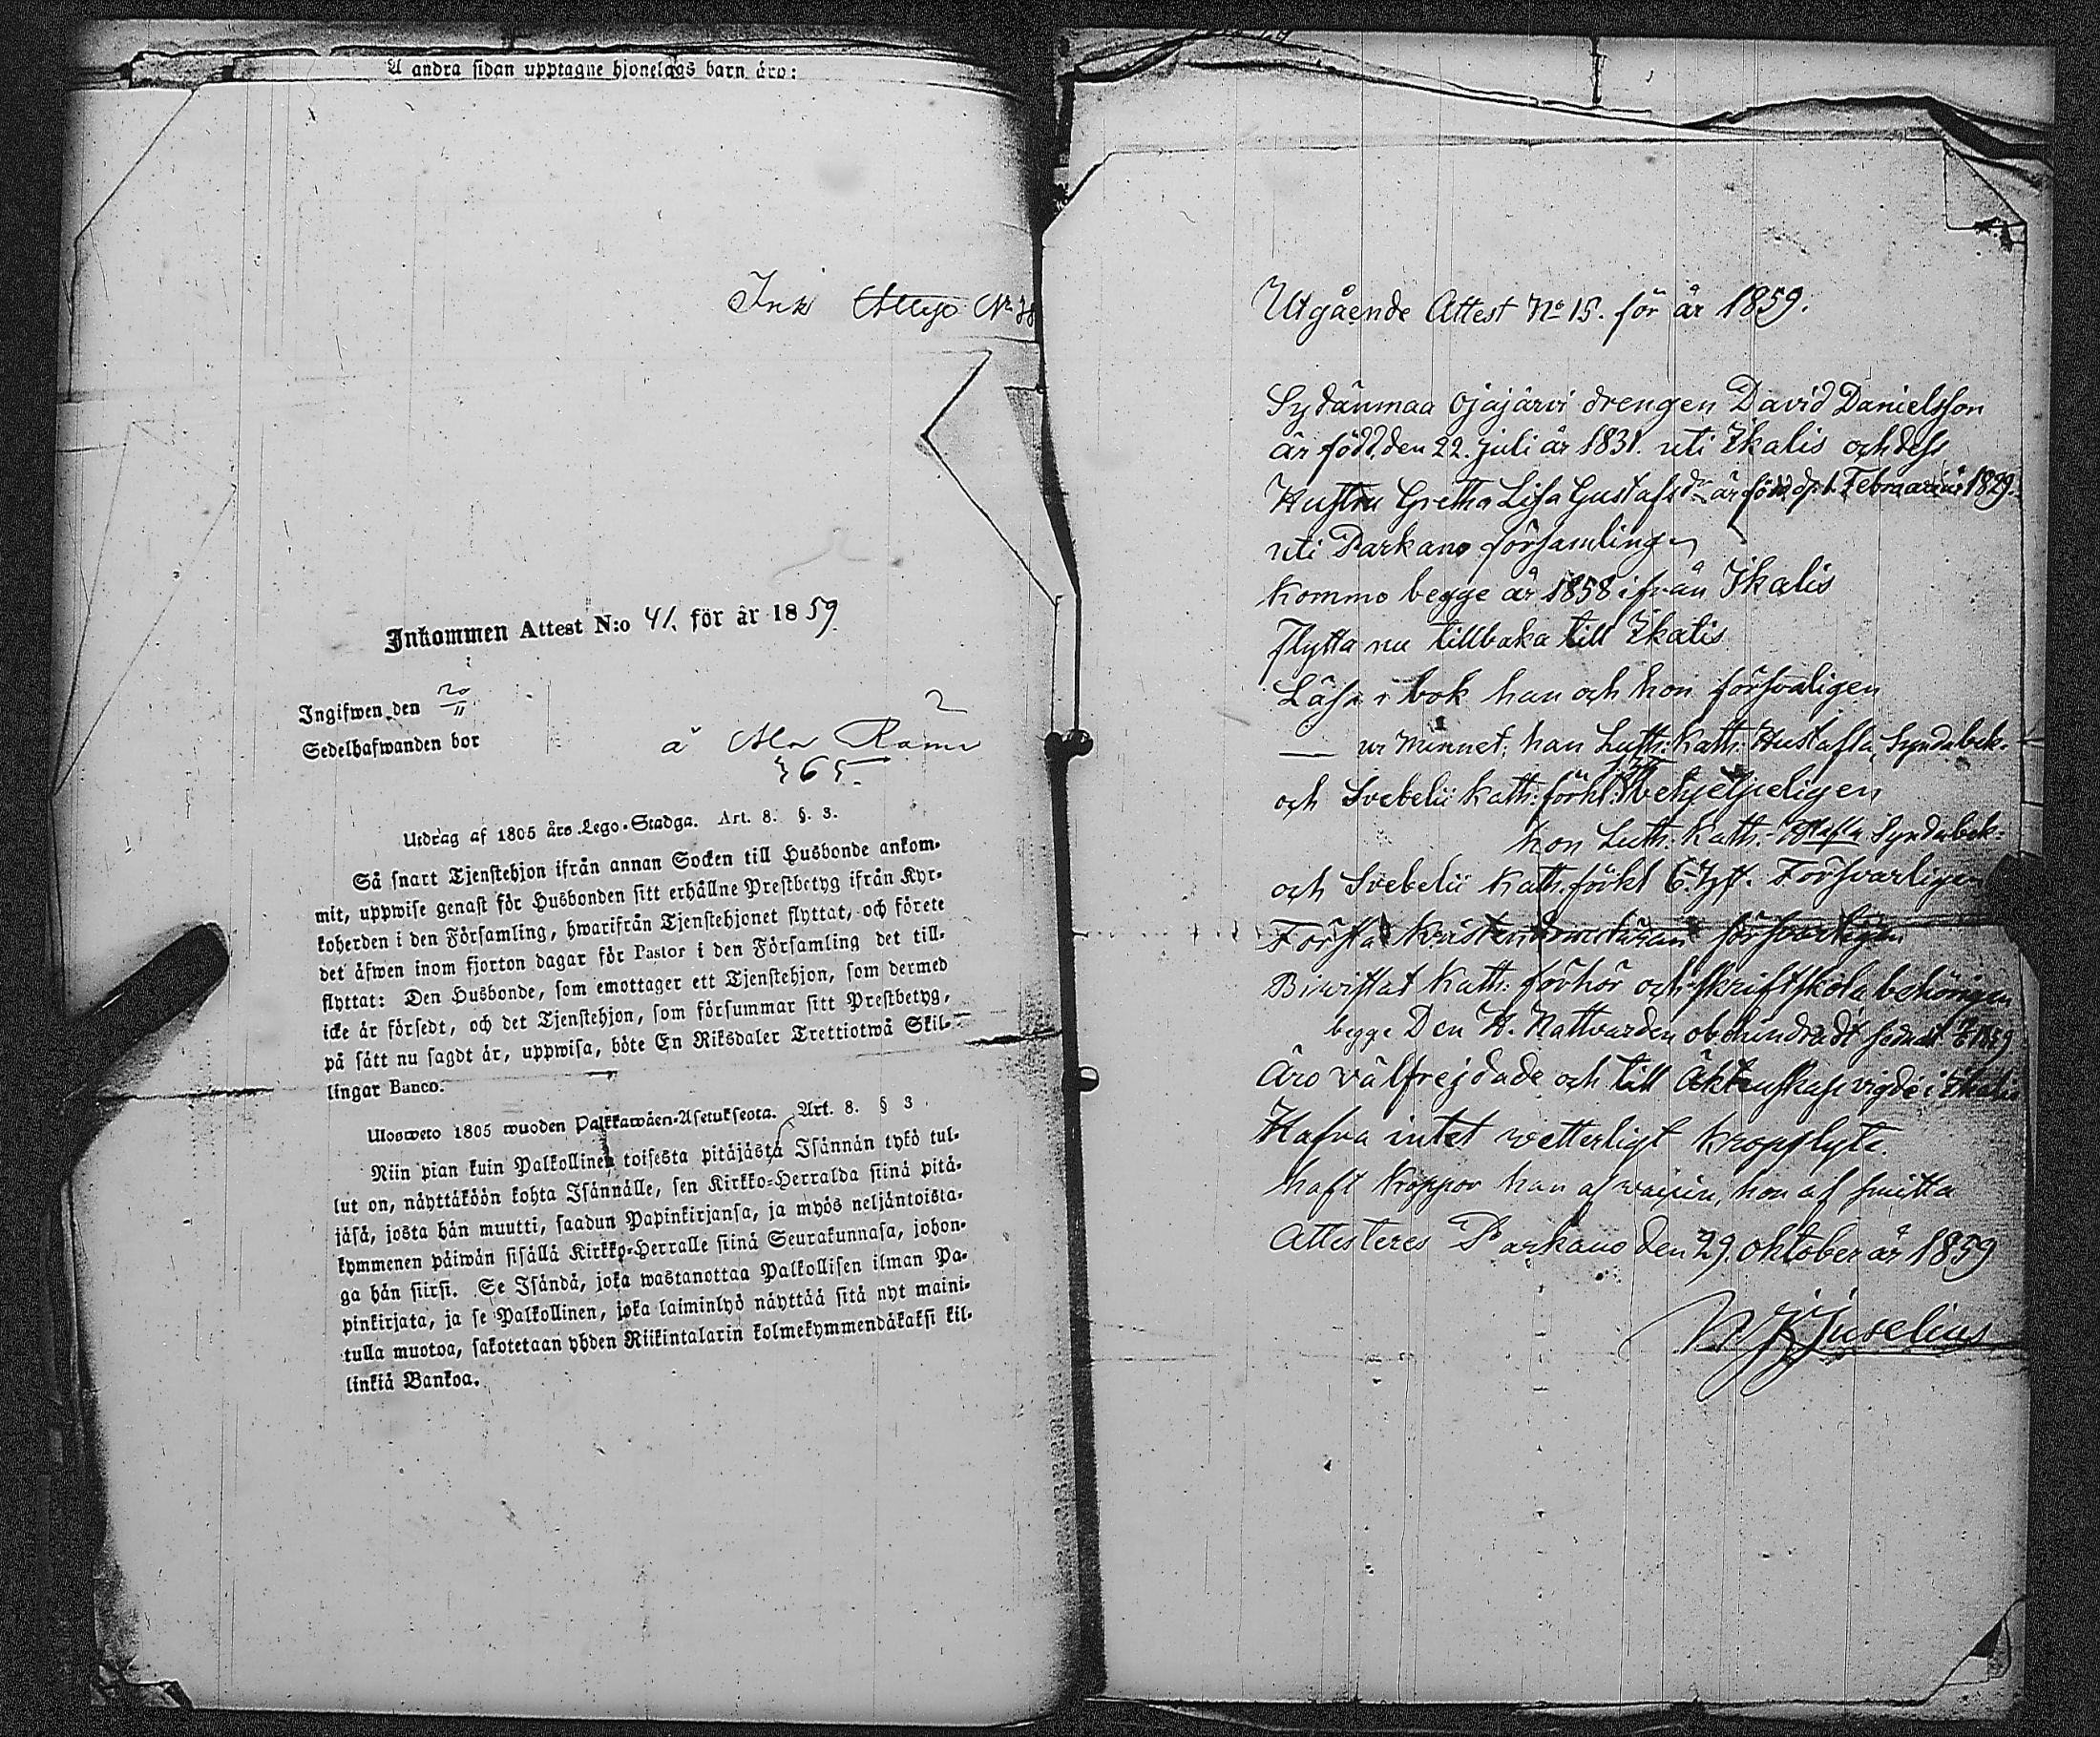 Å andra sidan upptagne hjonelags barn äro:
Ink Attest No
Inkommen Attest N:o 41. för år 1859.
Ingifwen den 20/11
Sedelhafwanden bor
å
365.
Utdrag af 1805 års Lego-Stadga. Art. 8. §. 3.
Så snart Tjenstehjon ifrån annan Socken till Husbonde ankom-
mit, uppwise genast för Husbonden sitt erhållne Prestbetyg ifrån Kyr-
koherden i den Församling, hwarifrån Tjenstehjonet flyttat, och förete
det äfwen inom fjorton dagar för Pastor i den Församling det till-
flyttat: Den Husbonde, som emottager ett Tjenstehjon, som dermed
icke är försedt, och det Tjenstehjon, som försummar sitt Prestbetyg,
på sätt nu sagdt är, uppwisa, böte En Riksdaler Trettiotwå Skil-
lingar Banco.
Ulosweto 1805 wuoden Palkkawäen-Asetuksesta. Art. 8. § 3.
Niin pian kuin Palkollinen toisesta pitäjästä Isännän tykö tul-
lut on, näyttäköön kohta Isännälle, sen Kirkko-Herralda siinä pitä-
jäsä, josta hän muutti, saadun Papinkirjansa, ja myös neljäntoista-
kymmenen päiwän sisällä Kirkko-Herralle siinä Seurakunnasa, johon-
ga hän siirsi. Se Isändä, joka wastanottaa Palkollisen ilman Pa-
pinkirjata, ja se Palkollinen, joka laiminlyö näyttää sitä nyt maini-
tulla muotoa, sakotetaan yhden Riikintalarin kolmekymmendäkaksi kil-
linkiä Bankoa.
Utgående Attest No 15. för år 1859.
Sydänmaa Ojajärvi drengen David Danielsson
är född den 22. juli år 1831. uti Ikalis och dess
Hustru Gretha Lisa Gustafsdr är född d. 1. Februari år 1829.
uti Parkano församling
Kommo begge år 1858 ifrån Ikalis
Flytta nu tillbaka till Ikalis
Läsa i bok han och hon försvarligen
— ur Minnet; han Luth: Kath: Hustafla, Syndabek.
och Svebelii Kath: förkl: behjelpeligen
hon Luth: Kath: Hstafla Syndabek:
och Svebelii Kath. förkl 6. Försvarligen
Förstå Kristendomsläran försvarligen
Biwistat Kath: förhör och skriftskola behörigen
begge Den H. Nattvarden obehindradt sednast 1859
Äro välfrejdade och till Äktenskap vigde i Ikalis
Hafva intet wetterligt kroppslyte.
haft koppor han af vaccin, hon af smitta
Attesteres Parkano den 29. oktober år 1859
Juselius